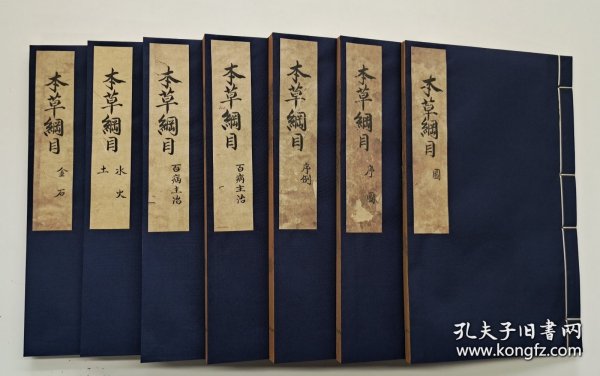 本草綱目
圖
本草綱目
序 圖
本草綱目
序例
本草綱目
百病主治
本草綱目
百病主治
本草綱目
水火
土
本草綱目
金石
孔夫子旧书网
www.kongfz.com